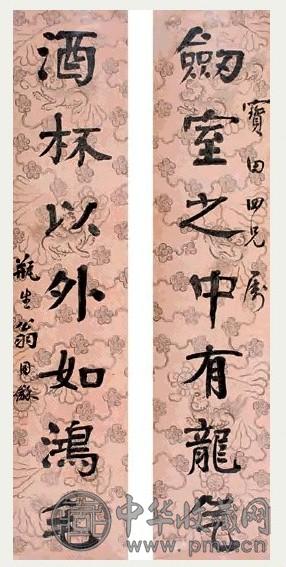 寶田四兄属
劒室之中有龍氣
酒杯以外如鴻毛
瓶生翁同龢
中华收藏网
www.pmv.cn